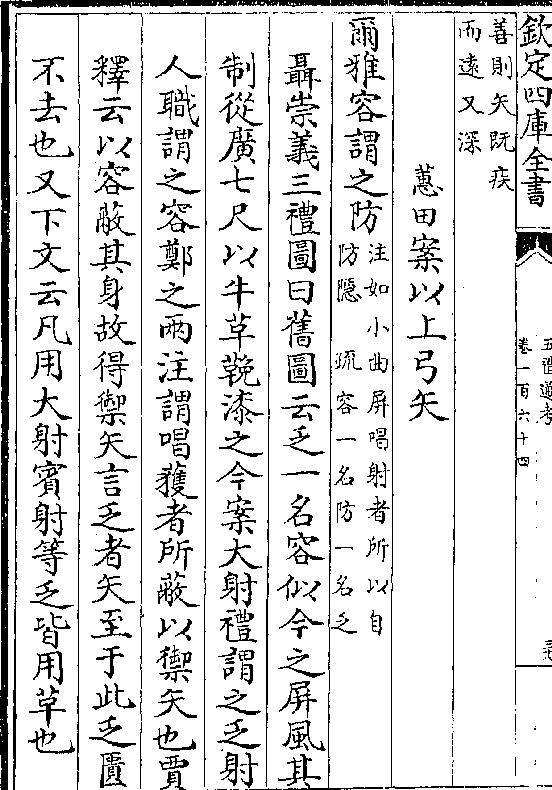 欽定四庫全書
五禮通考
卷一百六十四
善則矢既疾
而遠又深
蕙田案以上弓矢
爾雅容謂之防
注如小曲屏唱射者所以自
防隱 疏容一名防一名乏
聶崇義三禮圖曰舊圖云乏一名容似今之屏風其
制從廣七尺以牛革鞔漆之今案大射禮謂之乏射
人職謂之容鄭之兩注謂唱獲者所蔽以禦矢也賈
釋云以容蔽其身故得禦矢言乏者矢至于此乏匱
不去也又下文云凡用大射賓射等乏皆用革也